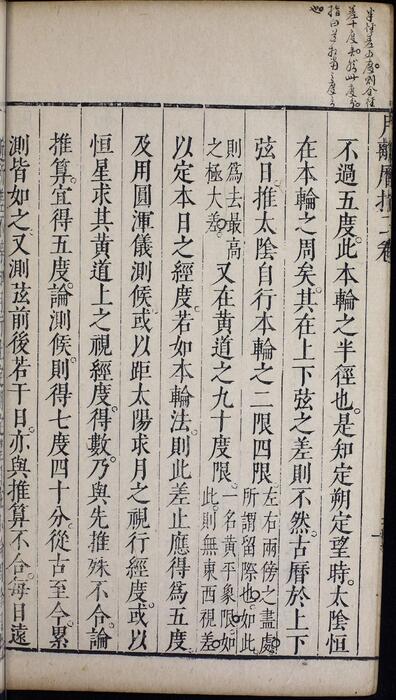 月離曆指二卷
不過五度。此本輪之半徑也。是知定朔定望時。太陰恒
在本輪之周矣。其在上下弦之差則不然。古曆於上下
弦日。推太陰自行本輪之二限四限。左右兩傍之盡處。所謂留際也。如此
則爲去最高之極大差。又在黃道之九十度限。一名黃平象限。如此。則無東西視差。
以定本日之經度。若如本輪法。則此差止應得爲五度。
及用圓渾儀測候。或以距太陽求月之視行經度。或以
恒星求其黃道上之視經度。得數。乃與先推殊不合。論
推算。宜得五度。論測候。則得七度四十分。從古至今。累
測皆如之。又測弦前後若干日。亦與推算不合。每日遠